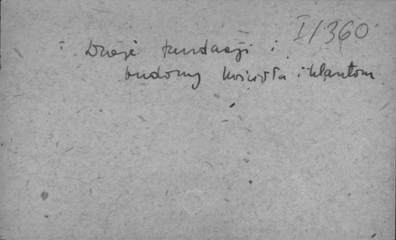 I/360
Dzieje fundacji i
budowy kościoła i klasztoru